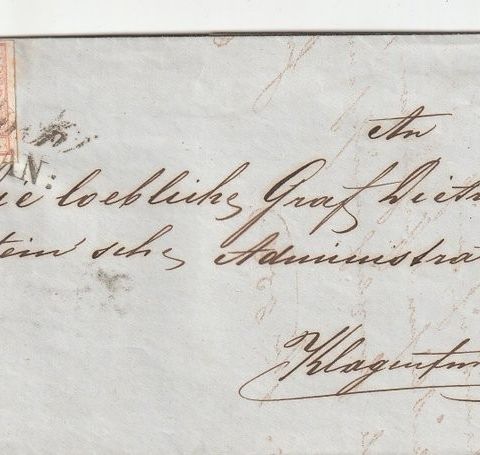 An
ie loebliche Graf Dietr
tein'sche Administra
Klagenfur
AN: